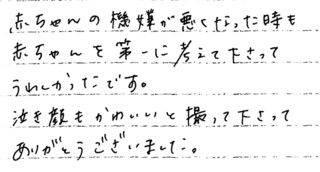 赤ちゃんの機嫌が悪くなった時も
赤ちゃんを第一に考えて下さって
うれしかったです。
泣き顔もかわいいと撮って下さって
ありがとうございました。